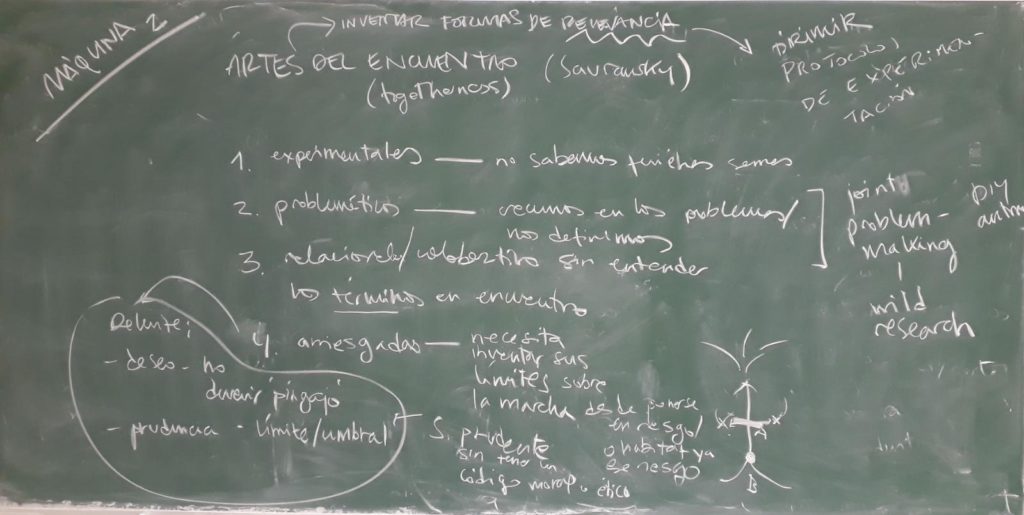 MÁQUINA 2
INVENTAR FORMAS DE RELEVANCIA
ARTES DEL ENCUENTRO (Savransky)
(togetherness)
DIRIMIR
PROTOCOLOS
DE EXPERIMEN-
TACIÓN
1. experimentales — no sabemos quiénes somos
2. problemáticos — creemos en los problemas/
no definimos
3. relacionales/colaborativo sin entender
los términos en encuentro
joint
problem-
making
wild
research
DIY
4. arriesgadas — necesita
inventar sus
límites sobre
la marcha desde ponerse
en riesgo/
o habitar ya
ese riesgo
5. prudente
sin tener un
código moral o ético
Delante;
- deseo - no
devenir pingajo
- prudencia - límite/umbral
A
B